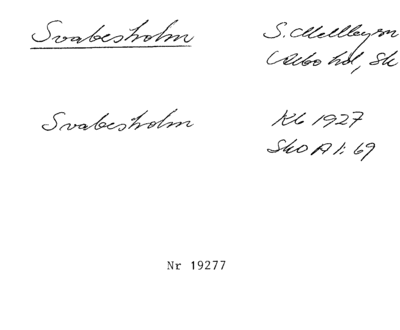 Svabesholm
S. Mellby sn
Albo hd, Sk
Svabesholm
Kb 1927
SkO A 1: 69
Nr 19277